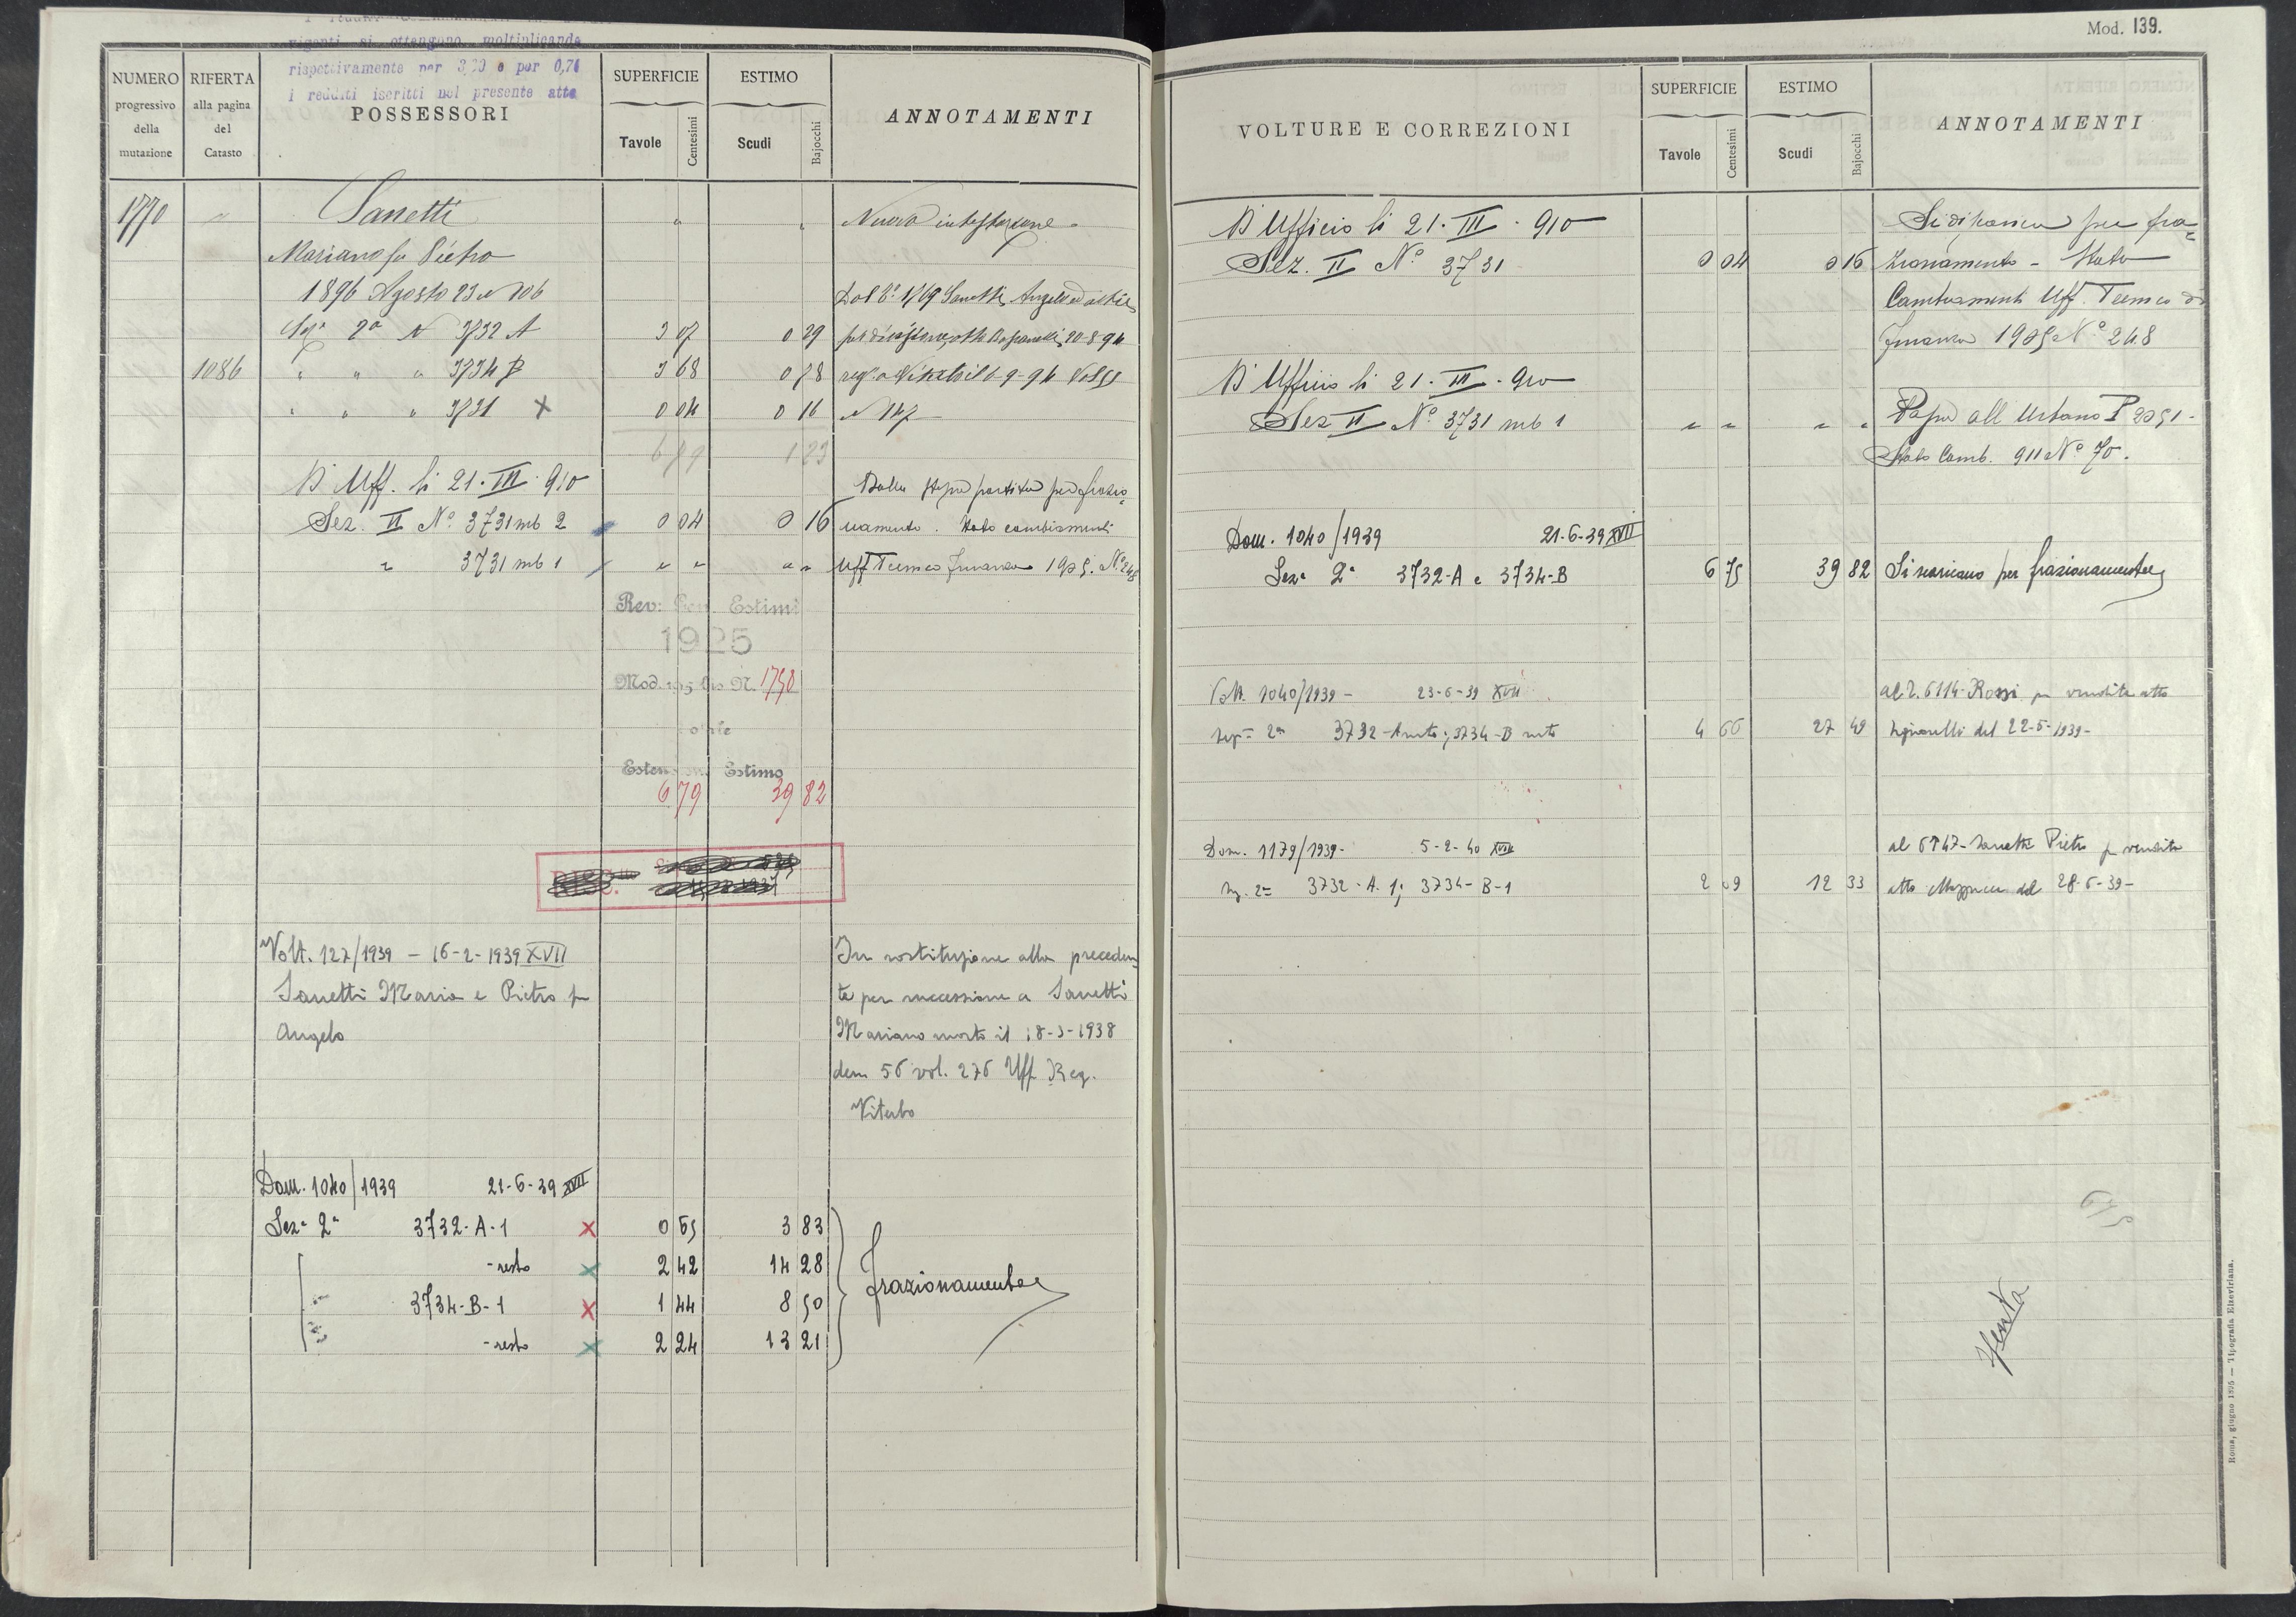 Mod. 139.
vigenti si ottengono moltiplicando
rispettivamente per 3,70 e per 0,71
i redditi iscritti nel presente atto
NUMERO progressivo della mutazione
RIFERTA alla pagina del Catasto
POSSESSORI
SUPERFICIE
Tavole Centesimi
ESTIMO
Scudi Bajocchi
ANNOTAMENTI
1770 " Sanetti " " Nuova intestazione
Mariano fu Pietro
1896 Agosto 23 N 106 Dal 1769 Sanetti Angelo
Sez. 2a N 3732 A 3 07 0 29
1086 " " " 3734 B 3 68 0 78
" " " 3731 X 0 04 0 16 N 147
6 79 1 23
D'Uff. li 21. III. 910 Dalla stessa partita per frazio
Sez. II No. 3731 sub 2 0 04 0 16 namento. Stato cambiamenti
" 3731 sub 1 " " " " Uff Tecnico Finanza 1905. No. 248
Rev: Gen. Estimi
1925
Mod. N. 1750
Estensione Estimo
6 79 39 82
Volt. 127/1939 - 16-2-1939 XVII In sostituzione alla preceden
Sanetti Maria e Pietro fu te per successione a Sanetti
Angelo Mariano morto il 18-3-1938
den 56 vol. 276 Uff Reg.
Viterbo
Dom. 1040/1939 21-6-39 XVII
Sez. 2a 3732-A-1 X 0 65 3 83
-resto X 2 42 14 28
3734-B-1 X 1 44 8 50 frazionamento
-resto X 2 24 13 21
VOLTURE E CORREZIONI
SUPERFICIE
Tavole Centesimi
ESTIMO
Scudi Bajocchi
ANNOTAMENTI
D'Ufficio li 21. III. 910 Si discarica per fra
Sez. II No. 3731 0 04 0 16 zionamento - Stato
Cambiamenti Uff. Tecnico di
Finanza 1905 No. 248
D'Ufficio li 21. III. 910
Sez II No. 3731 sub 1 " " " " Passa all Urbano P 2051 -
Stato Camb. 911 No. 70.
Dom. 1040/1939 21-6-39 XVII
Sez. 2a 3732-A e 3734-B 6 75 39 82 Si scaricano per frazionamento
Volt. 1040/1939 - 23-6-39 XVII al 6114 Rossi per vendita atto
Sez. 2a 3732-A resto; 3734-B resto 4 66 27 49 Signorelli del 22-5-1939-
Dom. 1179/1939- 5-2-40 XVIII al 6147 - Sanetti Pietro per vendita
Sez. 2a 3732-A-1; 3734-B-1 2 09 12 33 atto del 28-6-39-
Roma, giugno 1895 — Tipografia Elzeviriana.